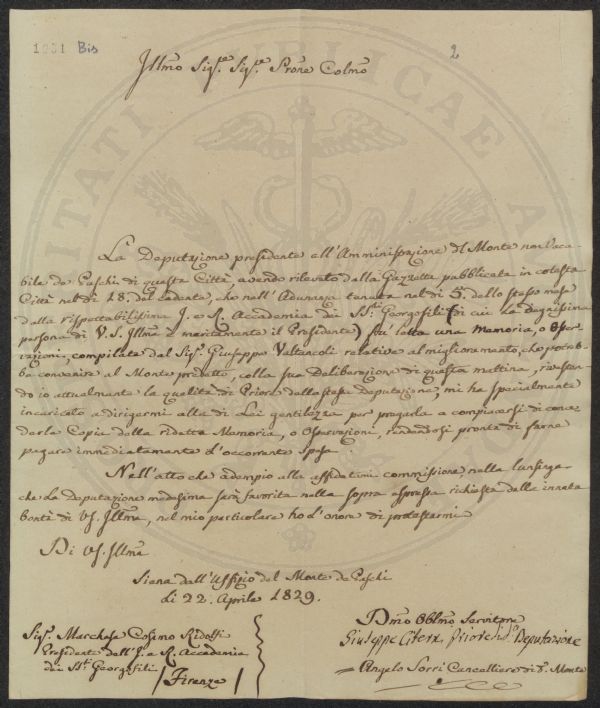 1031 Bis
2
Illmo Sigre. Sigre. Prone Colmo
La Deputazione presidente all'Amministrazione del Monte non Vaca-
bile de Paschi di questa Città, avendo rilevato dalla Gazzetta pubblicata in cotesta
Città nel dì 18. del cadente, che nell'Adunanza tenuta nel dì 5. dello stesso mese
dalla rispettabilissima J. e R. Accademia dei SSri. Georgofili (di cui la degnissima
persona di V. S. Illma è meritamente il Presidente) fu letta una Memoria, o Osser-
vazioni compilate dal Sigr. Giuseppe Valtancoli relative al miglioramento, che potreb-
be convenire al Monte predetto, colla sua Deliberazione di questa mattina, rivesten-
do io attualmente la qualità di Priore della stessa Deputazione, mi ha specialmente
incaricato a dirigermi alla di Lei gentilezza per pregarla a compiacersi di conce-
derle Copia della ridetta Memoria, o Osservazioni, rendendosi pronta di farne
pagare immediatamente l'occorrente spesa.
Nell'atto che adempio alla affidatami commissione nella lusinga
che la Deputazione medesima sarà favorita nella sopra espressa richiesta dalla innata
bontà di VS. Illma, nel mio particolare ho l'onore di protestarmi
Di VS. Illma
Siena dall'Uffizio del Monte de Paschi
li 22. Aprile 1829.
Sigr. Marchese Cosimo Ridolfi
Presidente dell'J. e R. Accademia
dei SSri Georgofili
Firenze
Dmo Obblmo Servitore
Giuseppe Priore di da Deputazione
Angelo Sorri Cancelliere di do. Monte
ITATI PUBLICAE